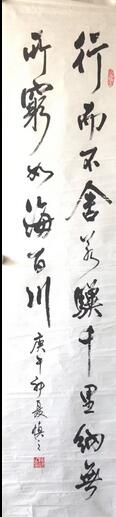 行而不舍若骥千里纳無
所窮如海百川
庚午初夏